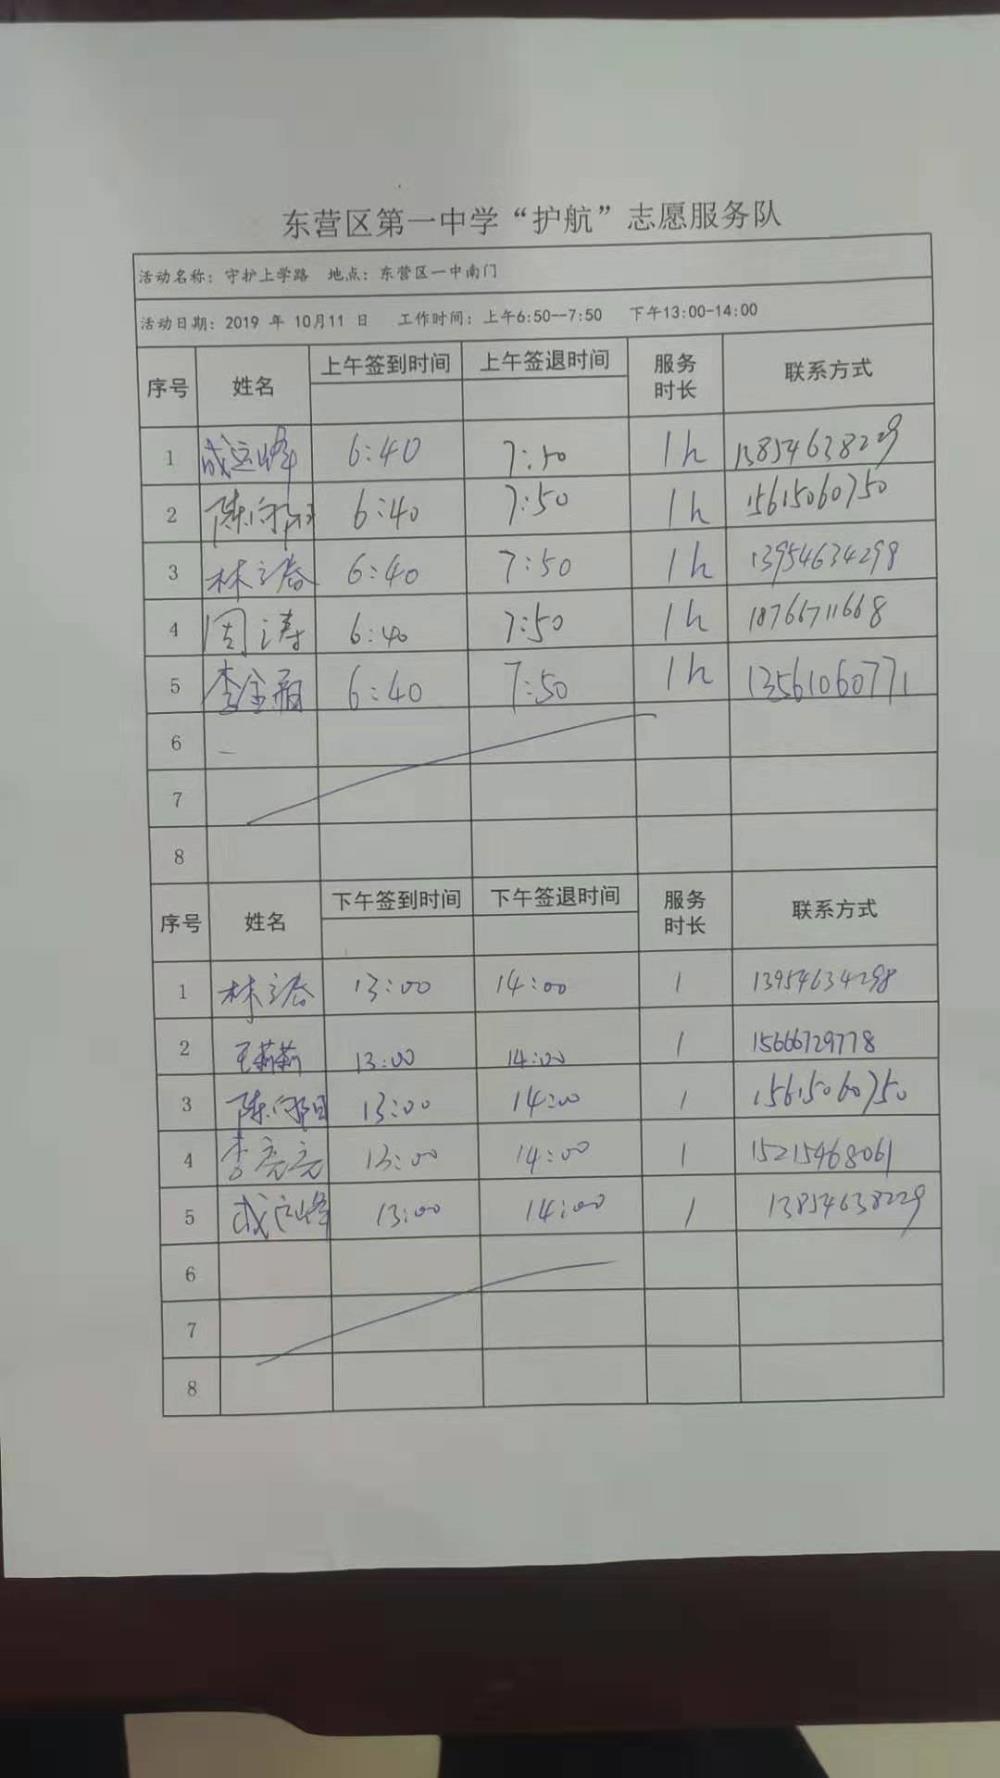 东营区第一中学“护航”志愿服务队
活动名称：守护上学路 地点：东营区一中南门
活动日期：2019 年 10月11 日 工作时间：上午6:50--7:50 下午13:00-14:00
序号 姓名 上午签到时间 上午签退时间 服务时长 联系方式
1 成运峰 6:40 7:50 1h 13854638229
2 陈向阳 6:40 7:50 1h 15615060750
3 林立春 6:40 7:50 1h 13954634298
4 周涛 6:40 7:50 1h 18766711668
5 李金 6:40 7:50 1h 13561060771
6
7
8
序号 姓名 下午签到时间 下午签退时间 服务时长 联系方式
1 林立春 13:00 14:00 1 13954634298
2 王莉莉 13:00 14:00 1 15666729778
3 陈向阳 13:00 14:00 1 15615060750
4 李亮亮 13:00 14:00 1 15215468061
5 成运峰 13:00 14:00 1 13854638229
6
7
8